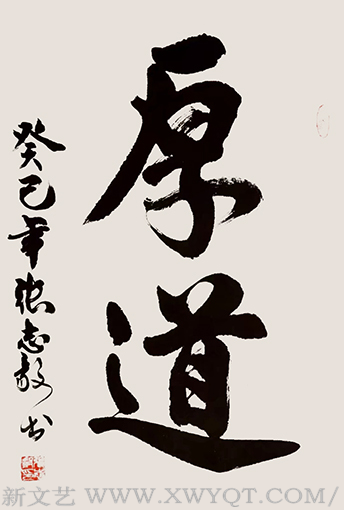 厚道
癸巳年张志敏书
新文艺 WWW.XWYQT.COM/